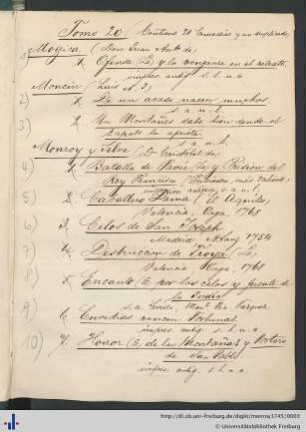 Tomo 20 (Contiene 21 Comedias y un duplicado)
Mogica (Don Juan Ant. de)
1) Ofensa (La) y la venganza en el retrato.
impres. antig. s. l. n. a.
Moncin (Luis A.)
2) De un acaso nacen muchos.
s. a. n. l.
3) Un Montañes sabe bien donde el
zapato le aprieta.
s. a. n. l.
Monroy y Silva (Dn. Cristobal de)
4) Batalla de Pavia (La) y Prision del
Rey Francisco
s. a. n. l.
5) Caballero Dama (El) Aquiles,
Valencia, Orga, 1768
6) Celos de San Joseph
Madrid 1754
7) Destruccion de Troya (La)
Valencia Orga, 1768
8) Encanto (El) por los celos y fuente de
la Judia
s. a.
9) 6. Envidias vencen Fortunas.
impres. antig. s. l. n. a.
10) 7. Honor (El) de las Montañas y Pastor
de San Pablo.
impres. antig. s. l. n. a.
http://dl.ub.uni-freiburg.de/diglit/monroy1745/0003
Universitätsbibliothek Freiburg